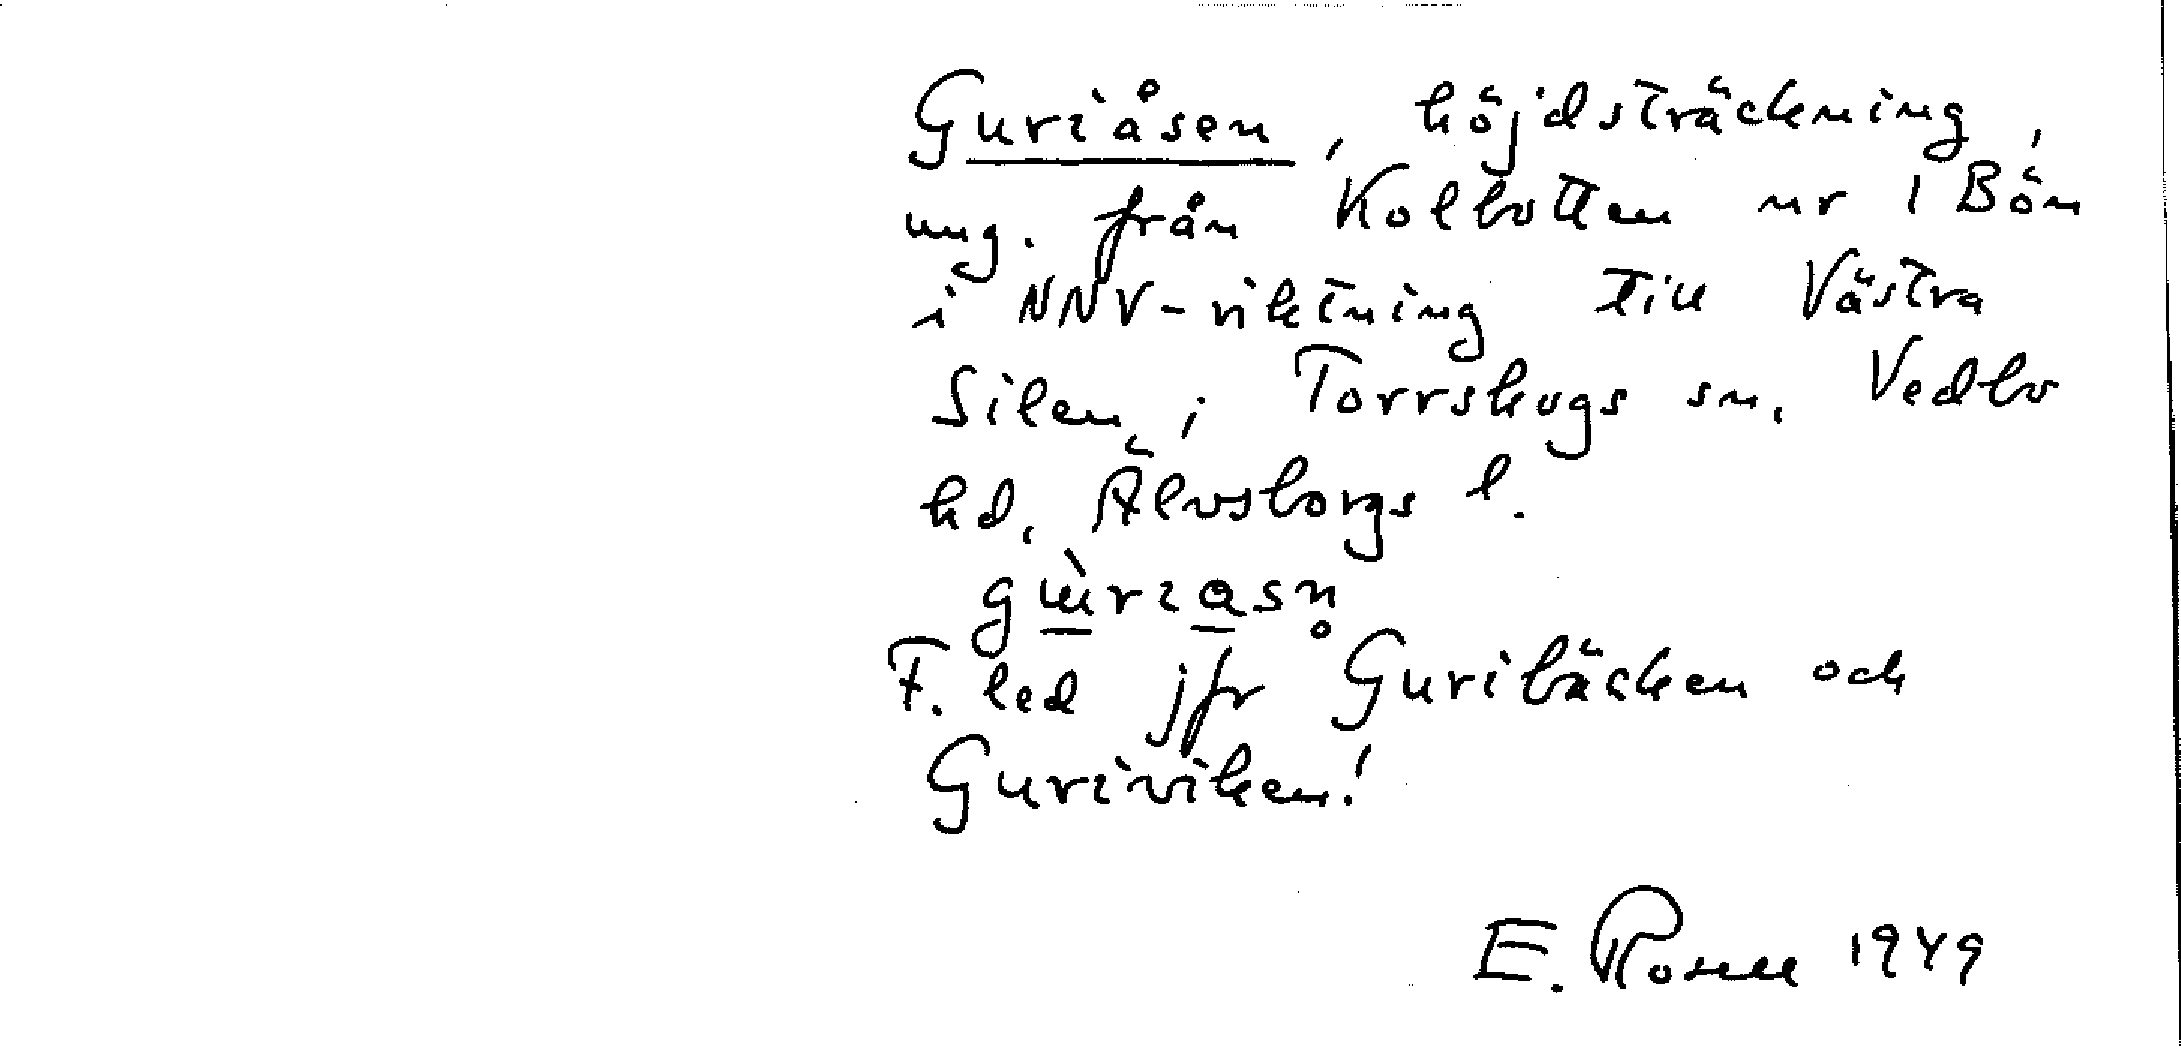 Guriåsen, höjdsträckning,
ung. från Kolbotten nr 1 Bön
i NNV-riktning till Västra
Silen, i Torrskogs sn. Vedbo
hd. Älvsborgs l.
F. led jfr Guribäcken och
Guriviken!
E. 1949